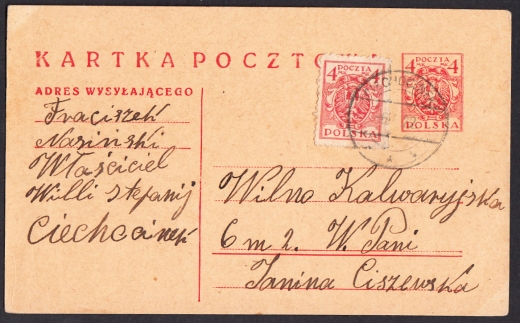 KARTKA POCZTO
ADRES WYSYŁAJĄCEGO
Fraciszek
Nasiński
Właściciel
Willi Stefanij
Ciechcinek
4 POCZTA 4
POLSKA
4 POCZTA 4
POLSKA
Wilno Kalwaryjska
6 m 2. W. Pani
Janina Ciszewska